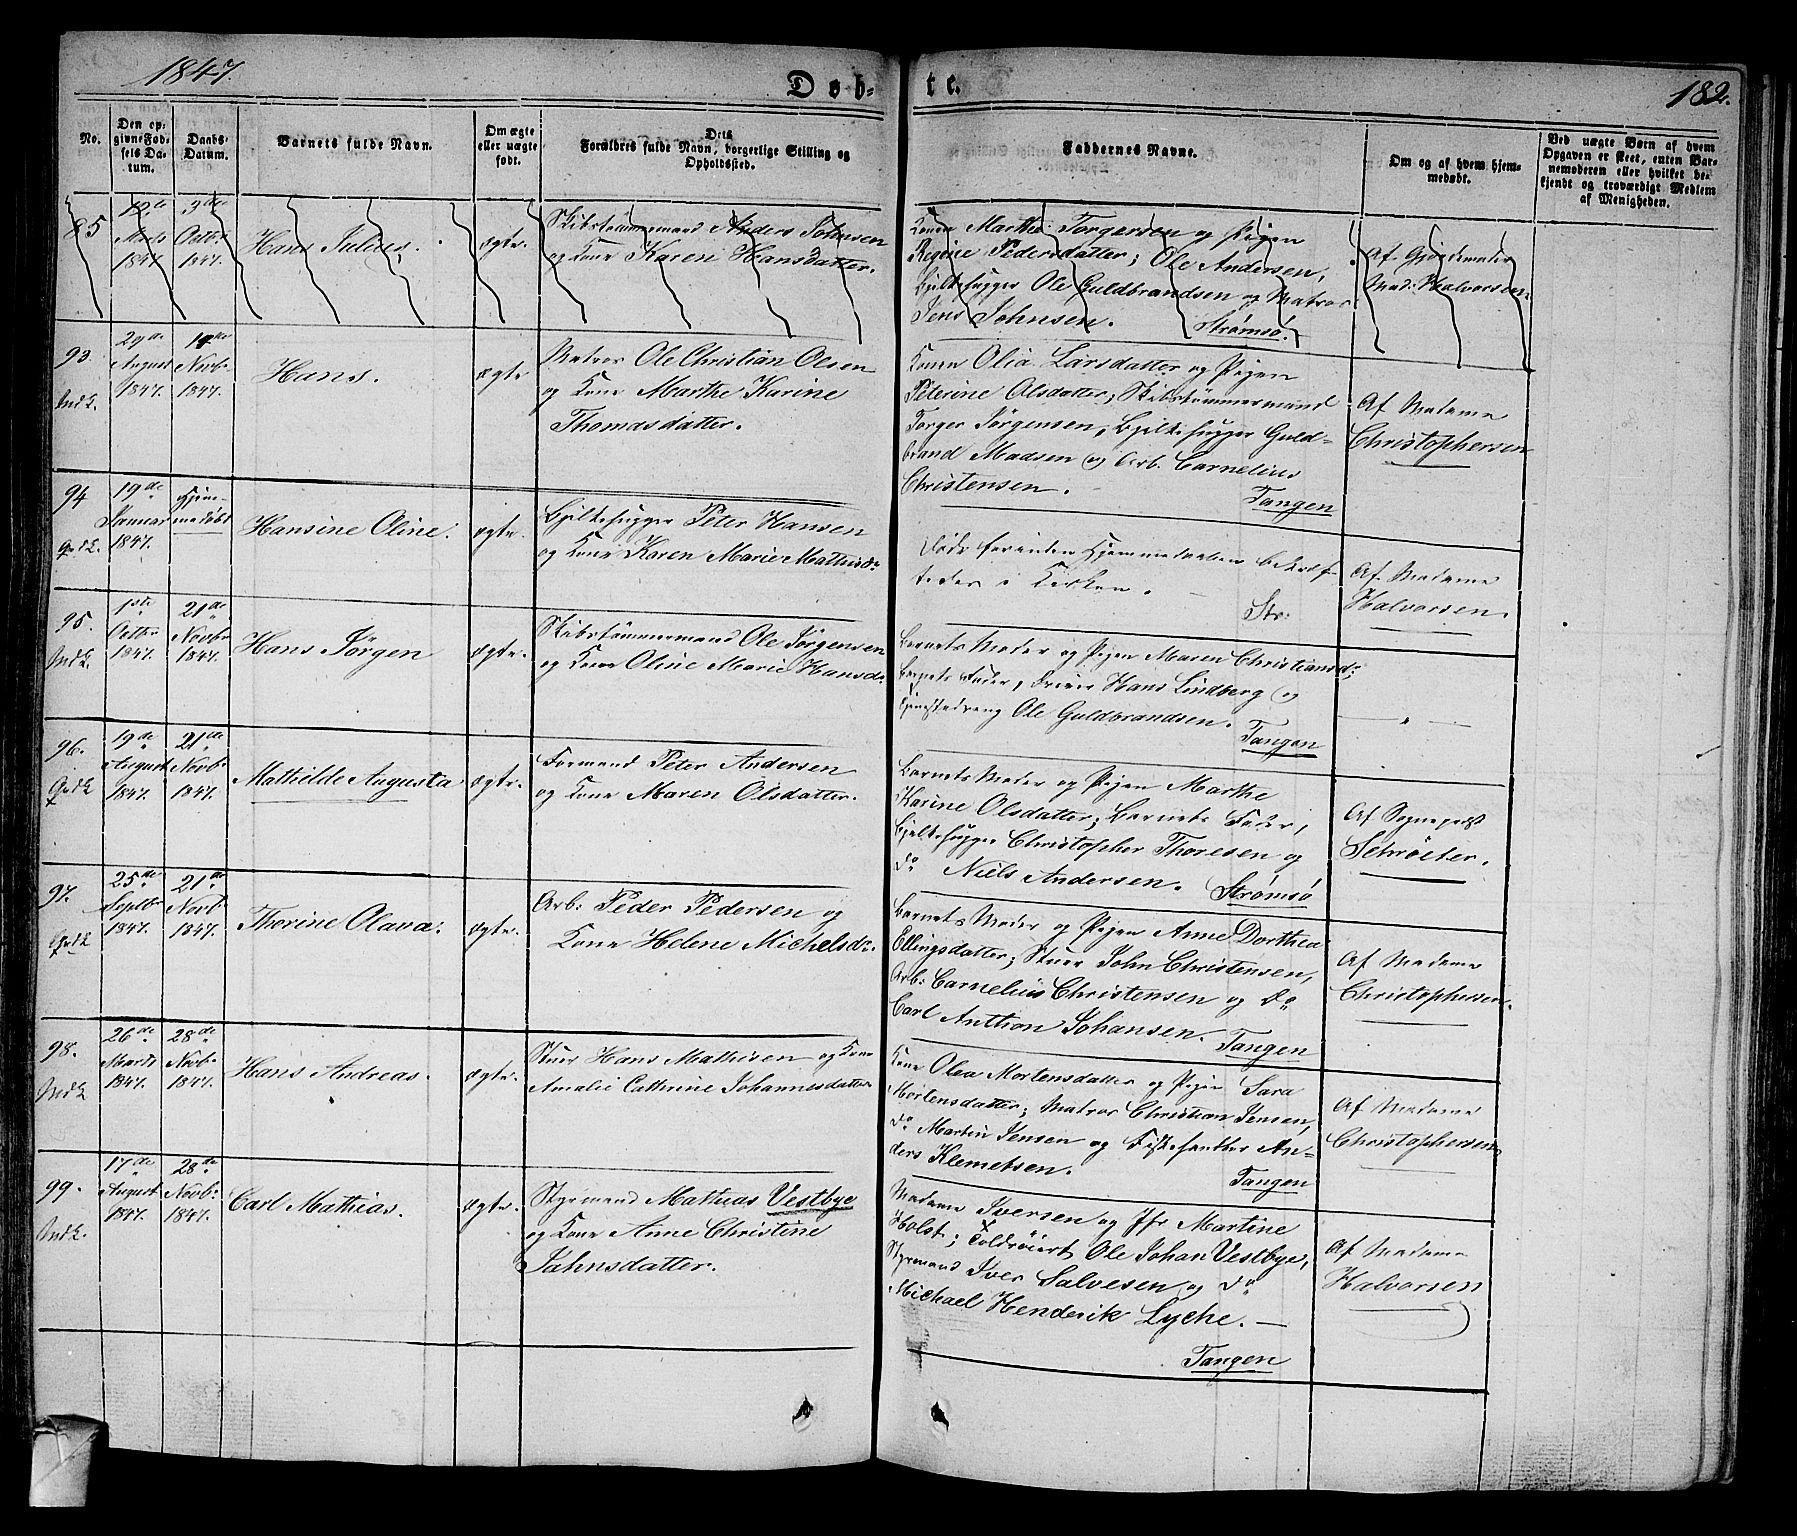 1847.
Døb-
te.
182.
No.
Den op-
givne Fød-
sels Da-
tum.
Daabs-
Datum.
Barnets fulde Navn.
Om ægte
eller uægte
født.
Dets
Forældres fulde Navn, borgerlige Stilling og
Opholdssted.
Faddernes Navne.
Om og af hvem hjem-
medøbt.
Ved uægte Børn af hvem
Opgaven er skeet, enten Bar-
nemoderen eller hvilket be-
kjendt og troværdigt Medlem
af Menigheden.
85
12te
1847.
3die
Octbr
1847.
Hans Julius.
ægte.
Skibstømmermand Anders Johnsen
og Kone Karen Hansdatter.
Konen Marthe Torgersen og Pigen
Regine Pedersdatter; Ole Andersen,
Bjelkehugger Ole Guldbrandsen og Matros
Jens Johnsen.
Strømsø.
Af Gjordemoder
Mad: Halvorsen
93
Indk.
29de
August
1847.
Novbr
1847.
Hans.
ægte
Matros Ole Christian Olsen
og Kone Marthe Karine
Thomasdatter.
Konen Olia Larsdatter og Pigen
Peterine Olsdatter; Skibstømmermand
Torger Jørgensen, Bjelkehugger Guld-
brand Madsen og Arb. Cornelius
Christensen.
Tangen
Af Madame
Christophersen
94
19de
Januar
1847.
Hjem-
medøbt
Hansine Oline.
ægte.
Bjelkehugger Peter Hansen
og Kone Karen Marie Mathisdr
Døde forinden Hjemmedaaben bekræf-
tedes i Kirken.
Str:
Af Madame
Halvorsen.
95.
Indk.
1ste
Octbr
1847.
21de
Novbr
1847.
Hans Jørgen
ægte.
Skibstømmermand Ole Jørgensen
og Kone Oline Marie Hansdr
Barnets Moder og Pigen Maren Christiansd;
Barnets Fader, Hans Lindberg og
Ole Guldbrandsen.
Tangen
— " —
96.
19de
August
1847.
21de
Novbr
1847.
Mathilde Augusta
ægte.
Formand Peter Andersen
og Kone Maren Olsdatter.
Barnets Moder og Pigen Marthe
Karine Olsdatter; Barnets Fader,
Bjelkehugger Christopher Thoresen og
Do Niels Andersen.
Strømsø
Af Sognepræst
Schrøeter.
97.
25de
Septbr
1847.
21de
Novbr
1847.
Thorine Olava.
ægte.
Arb: Peder Pedersen og
Kone Helene Michelsdr.
Barnets Moder og Pigen Anne Dorthea
Ellingsdatter; Stuer John Christensen,
Arb: Cornelius Christensen og Do
Carl Anthon Johansen.
Tangen
Af Madame
Christophersen.
98.
Indk
26de
Marts
1847.
28de
Novbr
1847.
Hans Andreas.
ægte.
Stuer Hans Mathisen og Kone
Amalie Cathrine Johannesdatter
Kone Olea Mortensdatter og Pigen Sara
Mortensdatter; Matros Christian Jensen,
Do Martin Jensen og Fiskehandler An-
ders Klemetsen.
Tangen
Af Madame
Christophersen
99.
Indk.
17de
August
1847.
28de
Novbr
1847.
Carl Mathias.
ægte.
Styrmand Mathias Vestbye
og Kone Anne Christine
Jahnsdatter.
Madame Iversen og Jfr Martine
Holst; Toldrøiert Ole Johan Vestbye,
Styrmand Iver Salvesen og Do
Michael Henderik Lyche. —
Tangen
Af Madame
Halvorsen